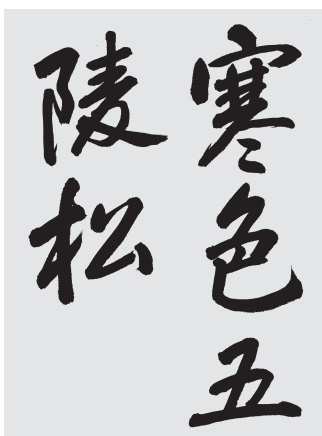 寒色五
陵松